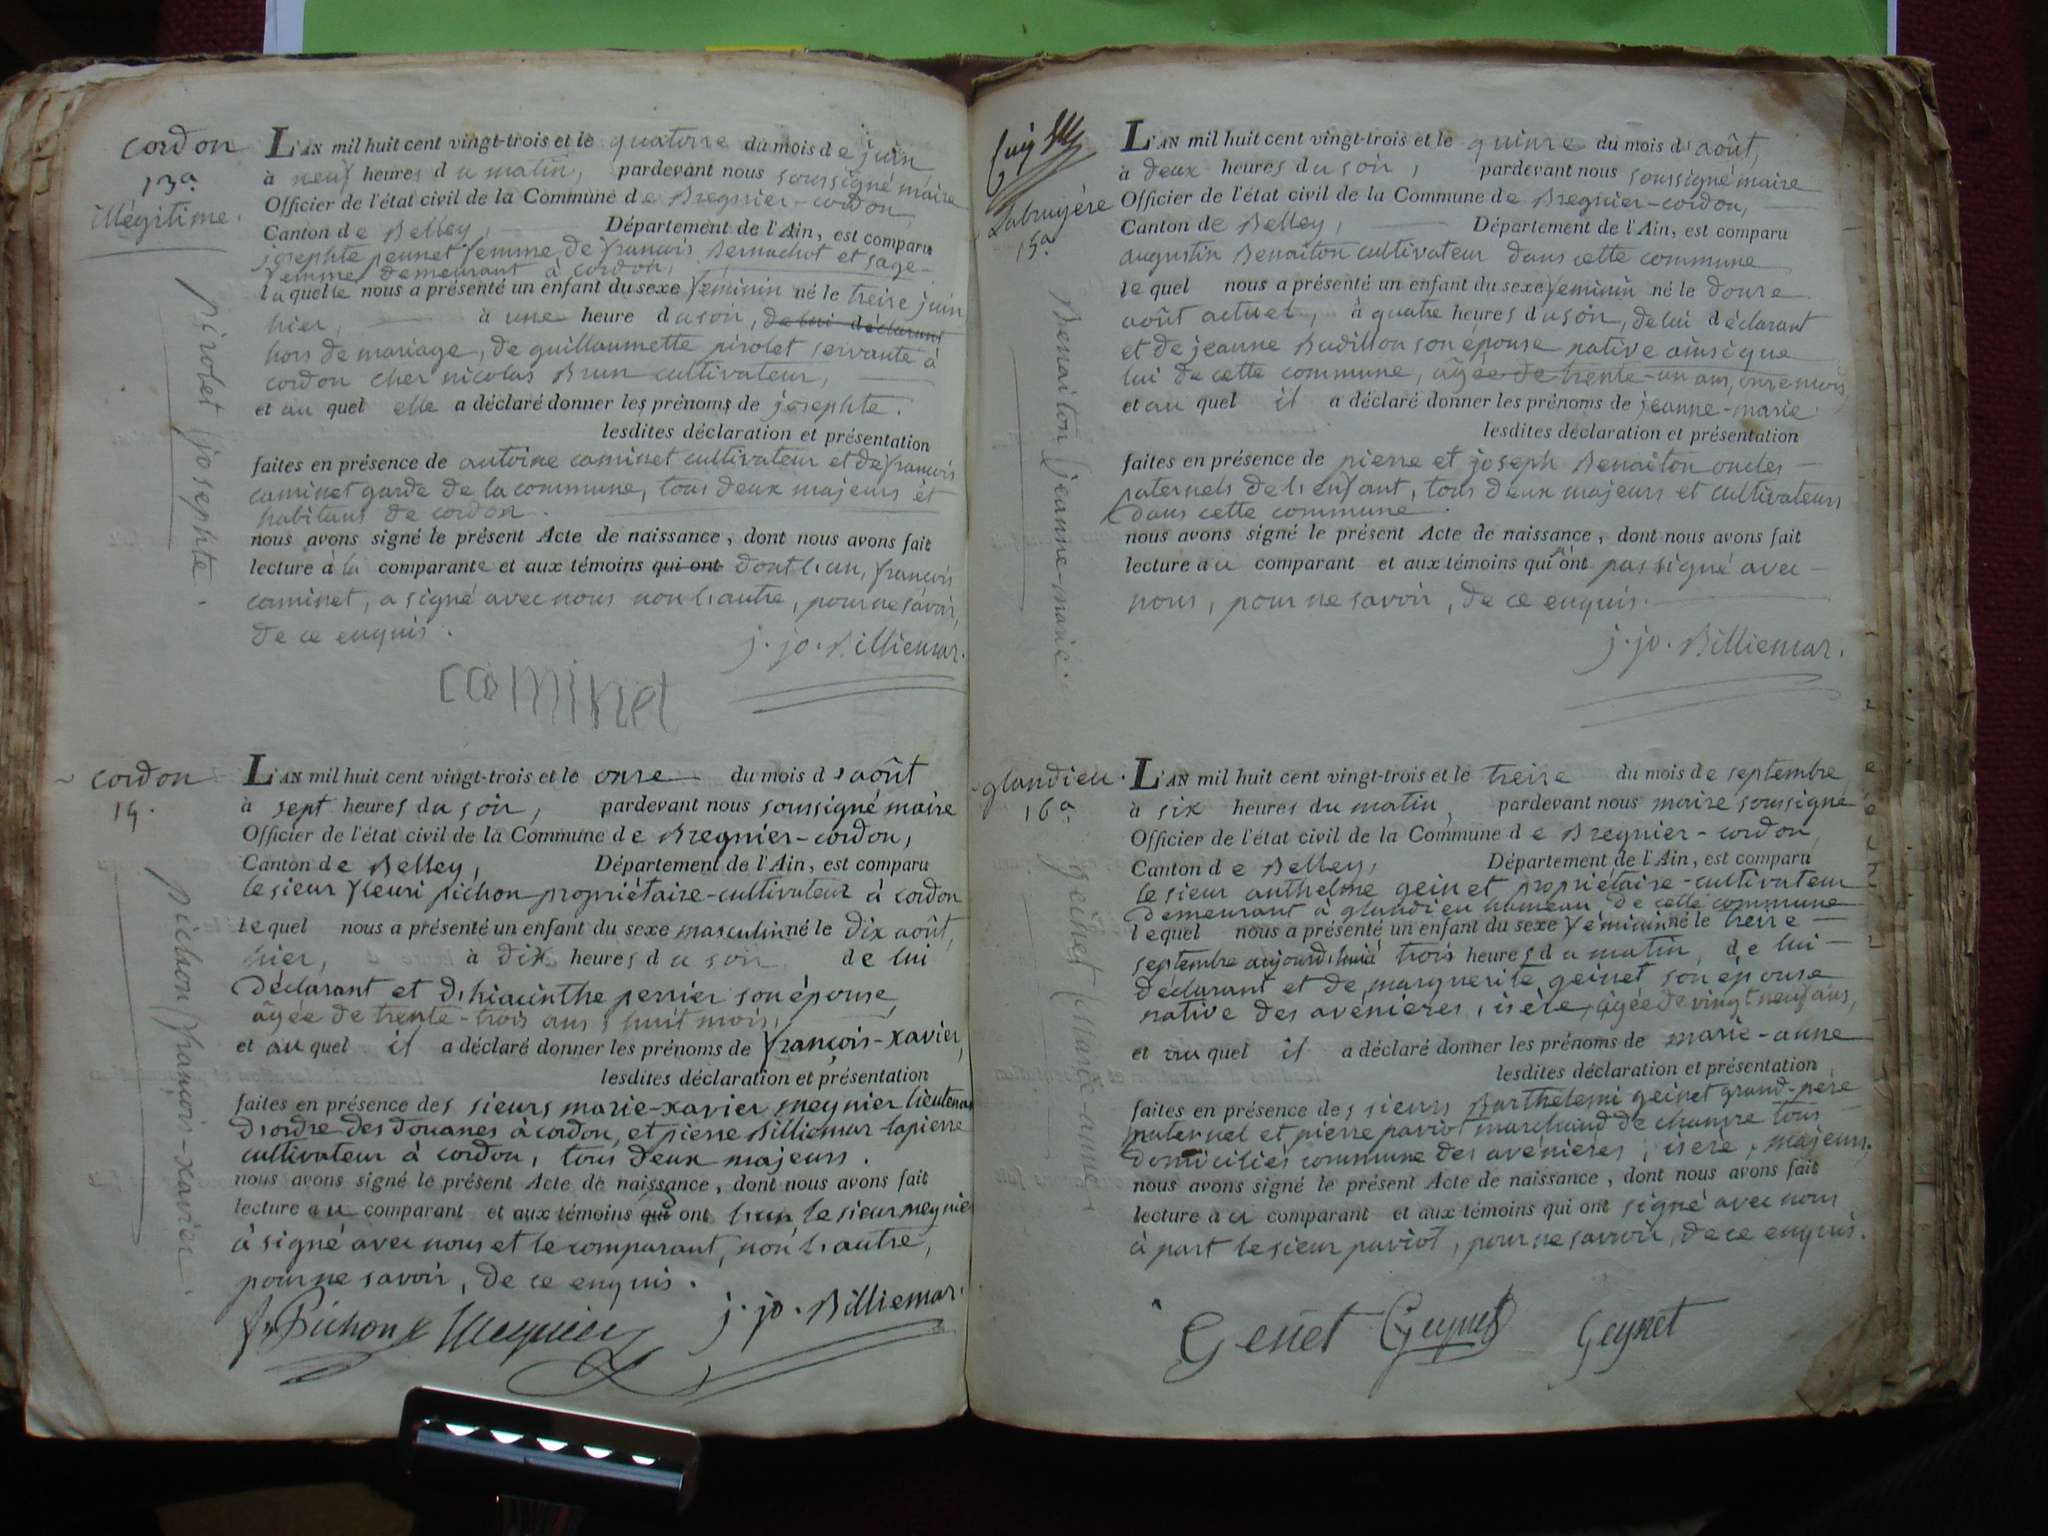 cordon
13a.
illégitime.
pirolet josephte.
L'AN mil huit cent vingt-trois et le quatorze du mois de juin
à neuf heures du matin, pardevant nous soussigné maire
Officier de l'état civil de la Commune de Bregnier-cordon,
Canton de Belley, Département de l'Ain, est comparu
josephte peunet femme de françois Bernachot et sage-
femme demeurant à cordon,
laquelle nous a présenté un enfant du sexe féminin né le treize juin
hier, à une heure du soir, de lui déclarant
hors de mariage, de guillaumette pirolet servante à
cordon chez nicolas Brun cultivateur,
et au quel elle a déclaré donner les prénoms de josephte.
lesdites déclaration et présentation
faites en présence de antoine caminet cultivateur et de françois
caminet garde de la commune, tous deux majeurs et
habitans de cordon.
nous avons signé le présent Acte de naissance, dont nous avons fait
lecture à la comparante et aux témoins qui ont dont l'un, françois
caminet, a signé avec nous non l'autre, pour ne savoir,
de ce enquis.
j. jo. Billiemaz.
caminet
cordon
14.
pichon françois-xavier.
L'AN mil huit cent vingt-trois et le onze du mois d'août
à sept heures du soir, pardevant nous soussigné maire
Officier de l'état civil de la Commune de Bregnier-cordon,
Canton de Belley, Département de l'Ain, est comparu
le sieur fleuri pichon propriétaire-cultivateur à cordon
lequel nous a présenté un enfant du sexe masculin né le dix août,
hier, à dix heures du soir de lui
déclarant et d'hiacinthe perrier son épouse,
âgée de trente-trois ans huit mois,
et au quel il a déclaré donner les prénoms de françois-xavier,
lesdites déclaration et présentation
faites en présence des sieurs marie-xavier meynier lieutenant
d'ordre des douanes à cordon, et pierre Billiemaz-lapierre
cultivateur à cordon, tous deux majeurs.
nous avons signé le présent Acte de naissance, dont nous avons fait
lecture au comparant et aux témoins qui ont l'un, le sieur meynier
à signé avec nous et le comparant, non l'autre,
pour ne savoir, de ce enquis.
j. jo. Billiemaz.
f. Pichon Meynier
Labruyère
15a
Benaiton jeanne-marie.
L'AN mil huit cent vingt-trois et le quinze du mois d'août,
à deux heures du soir, pardevant nous soussigné maire
Officier de l'état civil de la Commune de Bregnier-cordon,
Canton de Belley, Département de l'Ain, est comparu
augustin Benaiton cultivateur dans cette commune
lequel nous a présenté un enfant du sexe féminin né le douze
août actuel, à quatre heures du soir, de lui déclarant
et de jeanne Budillon son épouse native ainsi que
lui de cette commune, âgée de trente-un ans, onze mois,
et au quel il a déclaré donner les prénoms de jeanne-marie.
lesdites déclaration et présentation
faites en présence de pierre et joseph Benaiton oncles
paternels de l'enfant, tous deux majeurs et cultivateurs
dans cette commune.
nous avons signé le présent Acte de naissance, dont nous avons fait
lecture au comparant et aux témoins qui n'ont pas signé avec
nous, pour ne savoir, de ce enquis.
j. jo. Billiemaz.
glandieu.
16a.
geinet Marie-anne
L'AN mil huit cent vingt-trois et le treize du mois de septembre
à six heures du matin, pardevant nous maire soussigné
Officier de l'état civil de la Commune de Bregnier-cordon
Canton de Belley, Département de l'Ain, est comparu
le sieur anthelme geinet propriétaire-cultivateur
demeurant à glandieu hameau de cette commune
lequel nous a présenté un enfant du sexe féminin né le treize
septembre aujourd'hui à trois heures du matin, de lui
déclarant et de marguerite geinet son épouse
native des avénières, isère, âgée de vingt neuf ans,
et au quel il a déclaré donner les prénoms de marie-anne
lesdites déclaration et présentation
faites en présence des sieurs Barthelemi geinet grand-père
maternel et pierre paviot marchand de chanvre tous
domiciliés commune des avénières, isère, majeurs.
nous avons signé le présent Acte de naissance, dont nous avons fait
lecture au comparant et aux témoins qui ont signé avec nous
à part le sieur paviot, pour ne savoir, de ce enquis.
Genet Geynet Geynet